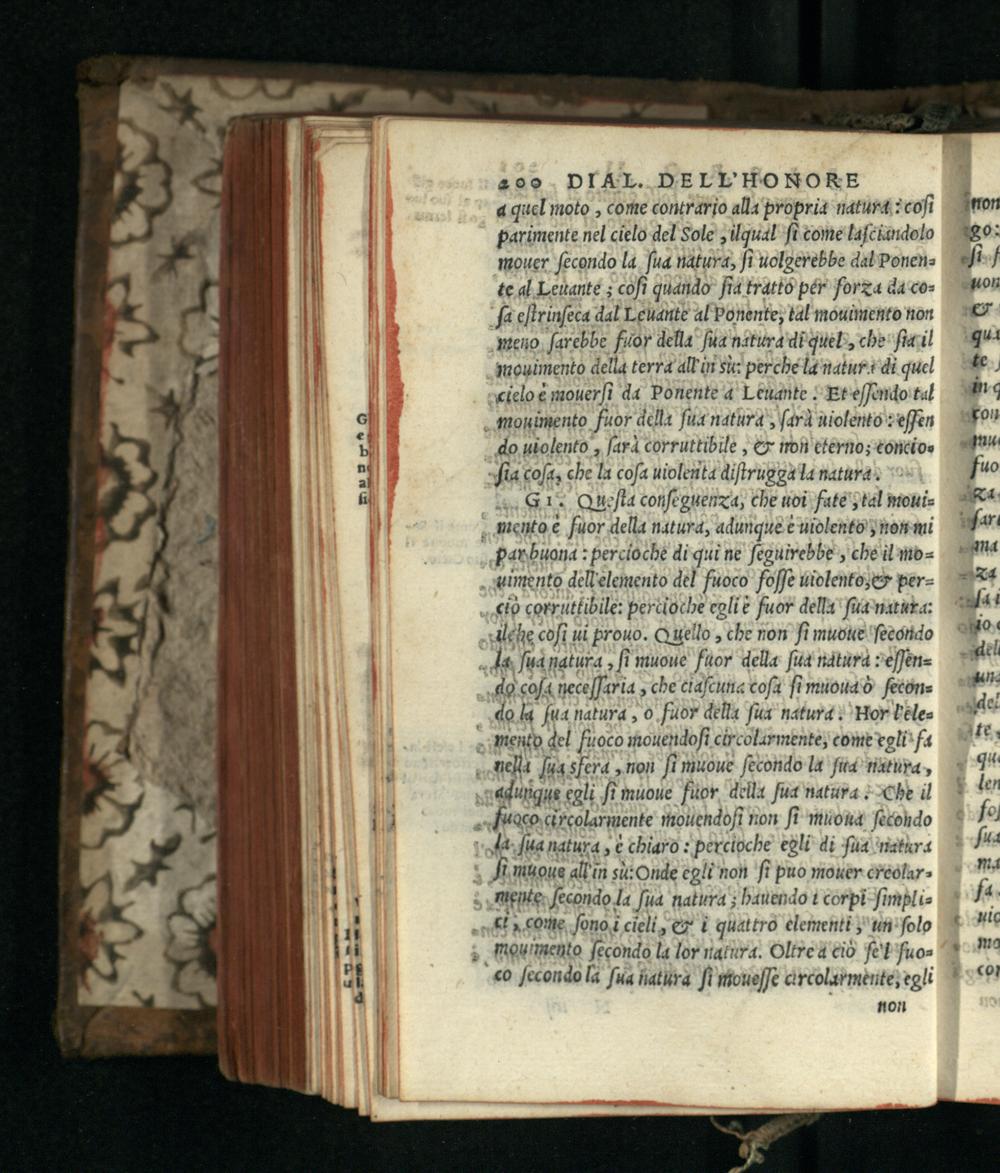 200 DIAL. DELL'HONORE
a quel moto, come contrario alla propria natura: cosi
parimente nel cielo del Sole, ilqual si come lasciandolo
mouer secondo la sua natura, si uolgerebbe dal Ponen=
te al Leuante; cosi quando sia tratto per forza da co=
sa estrinseca dal Leuante al Ponente, tal mouimento non
meno sarebbe fuor della sua natura di quel, che sia il
mouimento della terra all'in sù: perche la natura di quel
cielo è mouersi da Ponente a Leuante. Et essendo tal
mouimento fuor della sua natura, sarà uiolento: essen
do uiolento, sarà corruttibile, & non eterno; concio=
sia cosa, che la cosa uiolenta distrugga la natura.
GI. Questa conseguenza, che uoi fate, tal moui=
mento è fuor della natura, adunque è uiolento, non mi
par buona: percioche di qui ne seguirebbe, che il mo=
uimento dell'elemento del fuoco fosse uiolento, & per=
ciò corruttibile: percioche egli è fuor della sua natura:
ilche cosi ui prouo. Quello, che non si muoue secondo
la sua natura, si muoue fuor della sua natura: essen=
do cosa necessaria, che ciascuna cosa si muoua ò secon=
do la sua natura, o fuor della sua natura. Hor l'ele=
mento del fuoco mouendosi circolarmente, come egli fa
nella sua sfera, non si muoue secondo la sua natura,
adunque egli si muoue fuor della sua natura. Che il
fuoco circolarmente mouendosi non si muoua secondo
la sua natura, è chiaro: percioche egli di sua natura
si muoue all'in sù: Onde egli non si puo mouer creolar=
mente secondo la sua natura; hauendo i corpi simpli=
ci, come sono i cieli, & i quattro elementi, un solo
mouimento secondo la lor natura. Oltre a ciò se'l fuo=
co secondo la sua natura si mouesse circolarmente, egli
non